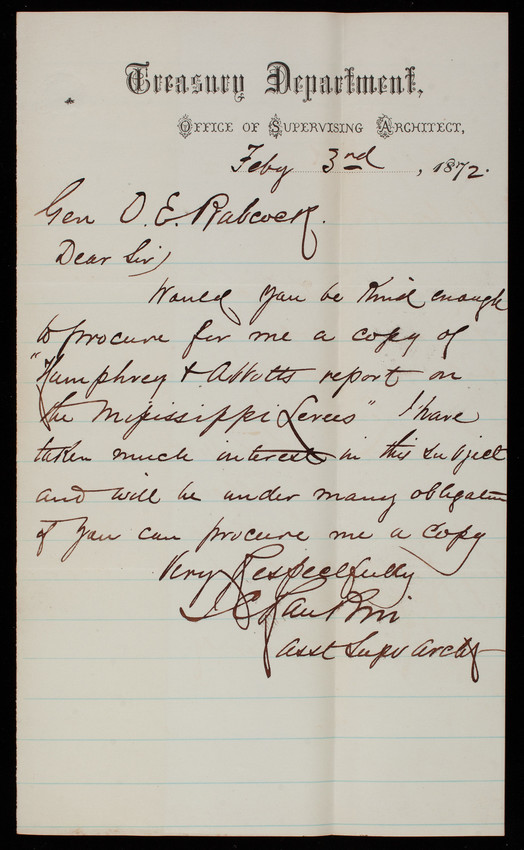 Treasury Department,
Office of Supervising Architect,
Feby 3rd, 1872.
Gen O. E. Babcock.
Dear Sir,
Would you be kind enough
to procure for me a copy of
"Humphrey & Abbotts report on
the Mississippi Levees" I have
taken much interest in this subject
and will be under many obligation
if you can procure me a copy
Very Respectfully
Asst Supv Archt